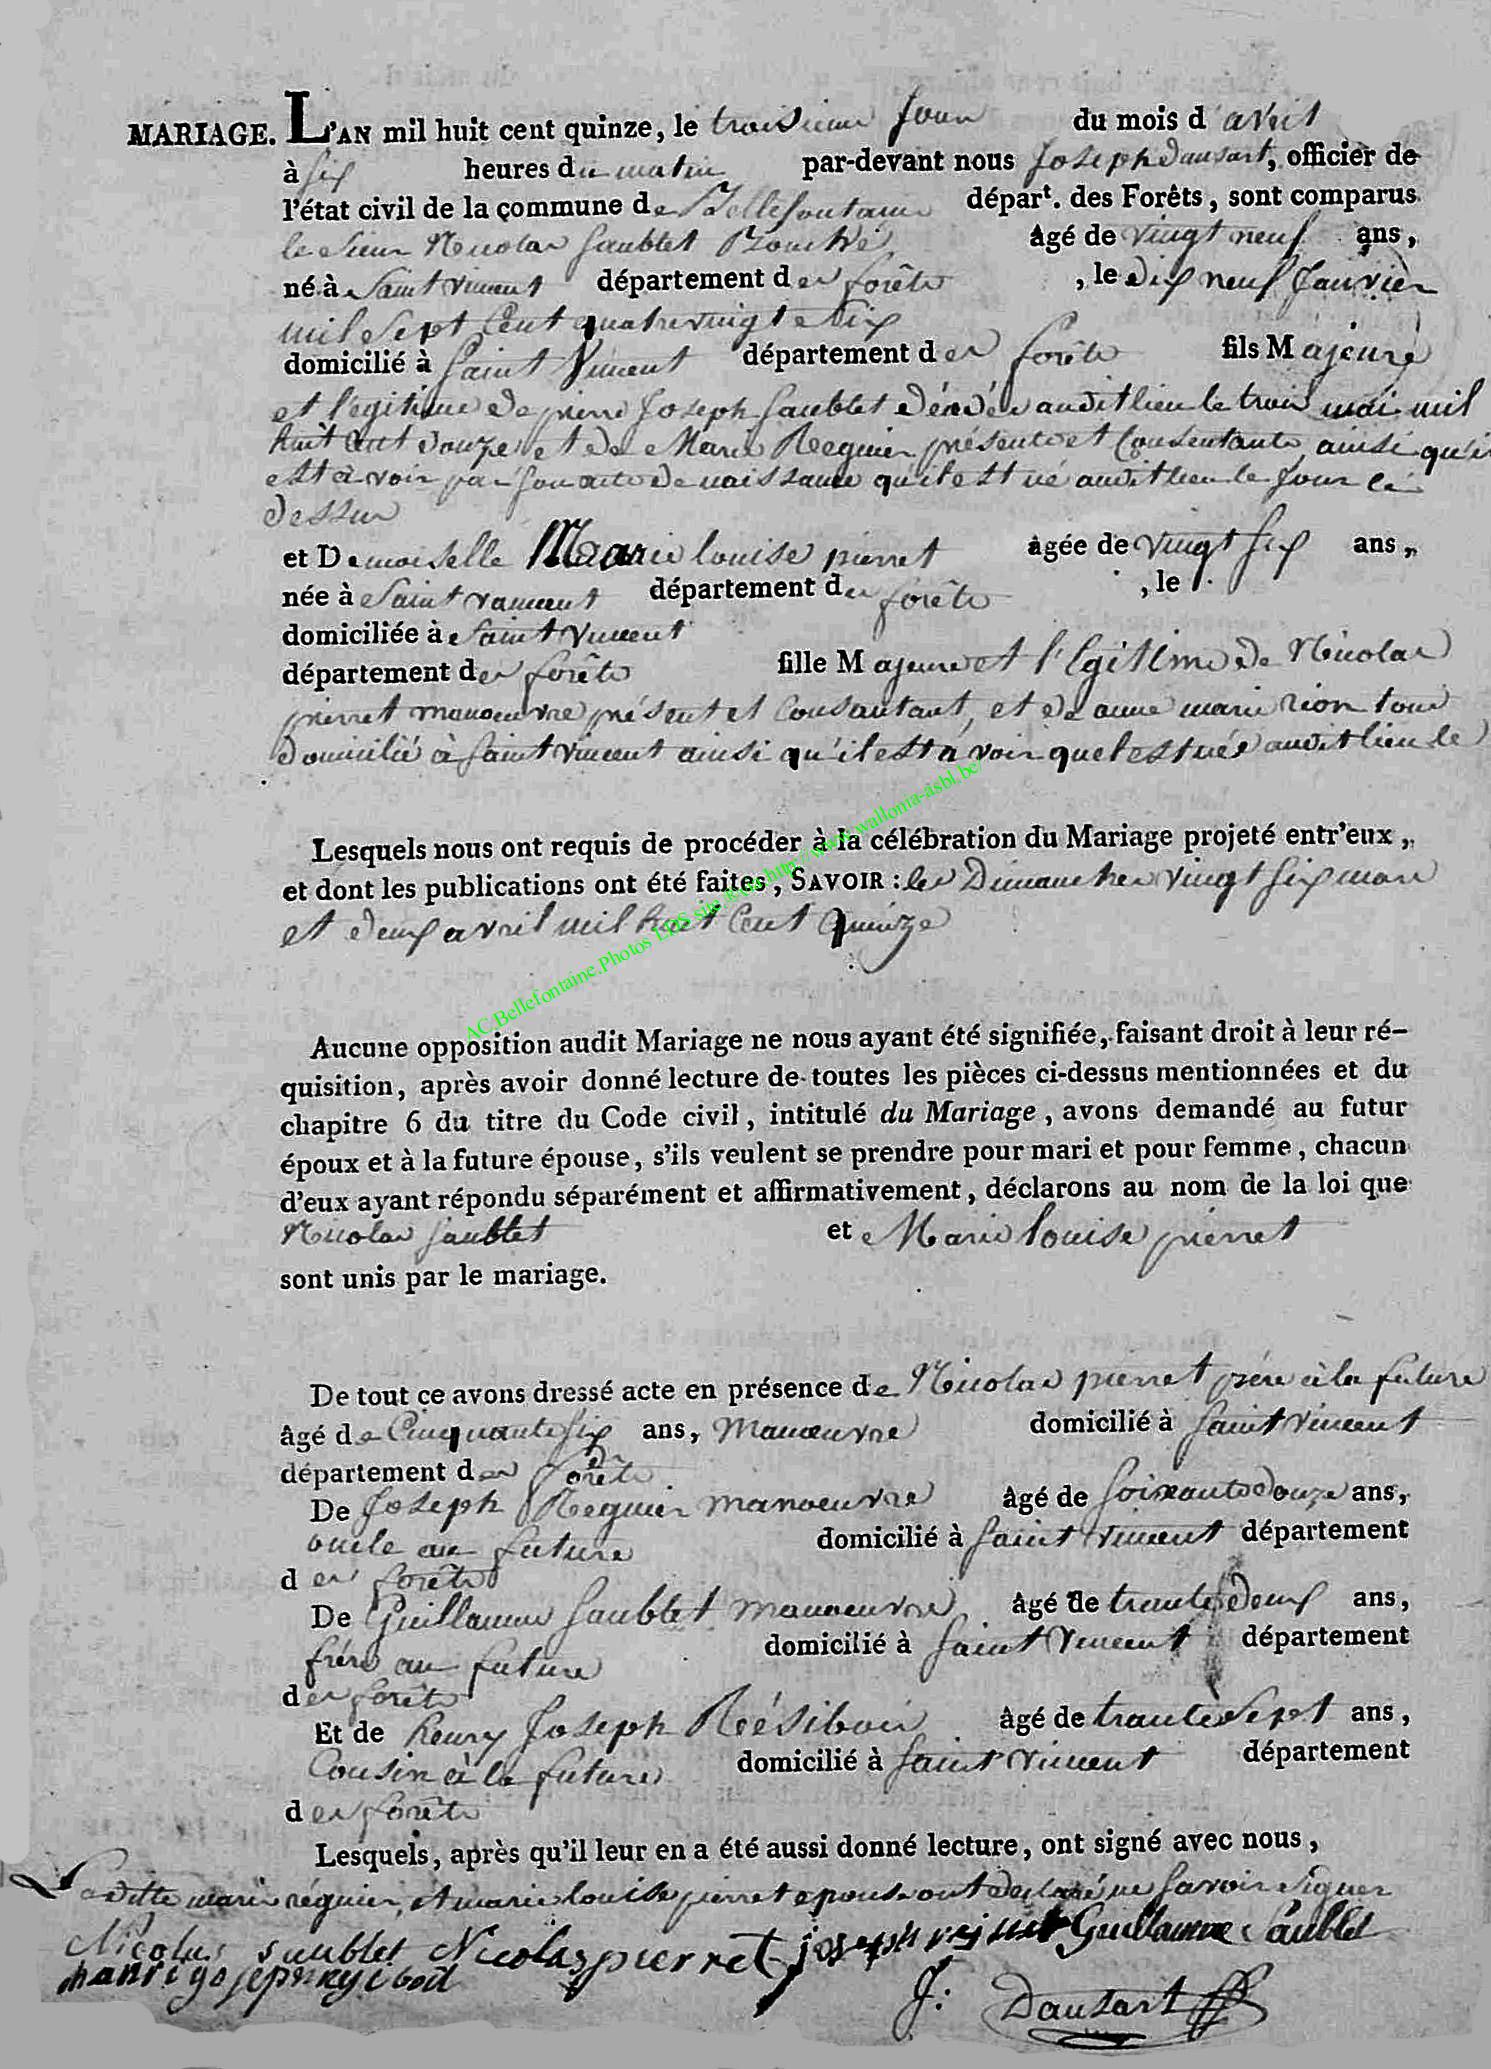 MARIAGE. L'AN mil huit cent quinze, le troisieme Jour du mois d'avril
à six heures du matin par-devant nous Joseph Dausart, officier de
l'état civil de la commune de Bellefontaine départ. des Forêts, sont comparus
le sieur Nicolas Saublet âgé de vingt neuf ans,
né à Saint vincent département des forêts, le dix neuf Janvier
mil sept Cent quatre vingt e six
domicilié à Saint Vincent département des forêts fils Majeure
et l'égitime de pierre Joseph Saublet décédé audit lieu le trois mai mil
huit Cent douze et de Marie Reguier présente et Consentante, ainsi qu'il
est à voir par son acte de naissance qu'il est né audit lieu le Jour ci
dessus
et Demoiselle Marie louise pierret âgée de vingt six ans,
née à Saint vancent département des forêts, le
domiciliée à Saint Vincent
département des forêts fille Majeure et l'Egitime de Nicolas
pierret manoeuvre présent et Consantant, et de anne marie rion tous
domicilié à Saint Vincent ainsi qu'il est à voir quelest née audit lieu le
Lesquels nous ont requis de procéder à la célébration du Mariage projeté entr'eux,
et dont les publications ont été faites, SAVOIR : les Dimanches vingt six mars
et deux avril mil huit Cent quinze
AC.Bellefontaine.Photos LDS site Exte http://www.wallonia-asbl.be/
Aucune opposition audit Mariage ne nous ayant été signifiée, faisant droit à leur ré-
quisition, après avoir donné lecture de toutes les pièces ci-dessus mentionnées et du
chapitre 6 du titre du Code civil, intitulé du Mariage, avons demandé au futur
époux et à la future épouse, s'ils veulent se prendre pour mari et pour femme, chacun
d'eux ayant répondu séparément et affirmativement, déclarons au nom de la loi que
Nicolas Saublet et Marie louise pierret
sont unis par le mariage.
De tout ce avons dressé acte en présence de Nicolas pierret père à la future
âgé de Cinquante six ans, Manoeuvre domicilié à Saint vincent
département des forêts
De Joseph Reguier manoeuvre âgé de soixante douze ans,
oncle au future domicilié à Saint Vincent département
des forêts
De Guillaume Saublet manoeuvre âgé de trante deux ans,
frère au future domicilié à Saint Vincent département
des forêts
Et de henry Joseph Résibois âgé de trante sept ans,
Cousin à la future domicilié à Saint Vincent département
des forêts
Lesquels, après qu'il leur en a été aussi donné lecture, ont signé avec nous,
Laditte marie réguier, et marie louise pierret epouse ont declaré ne savoir signer
Nicolas Saublet Nicolas pierret Guillaume Saublet
J: Dausart